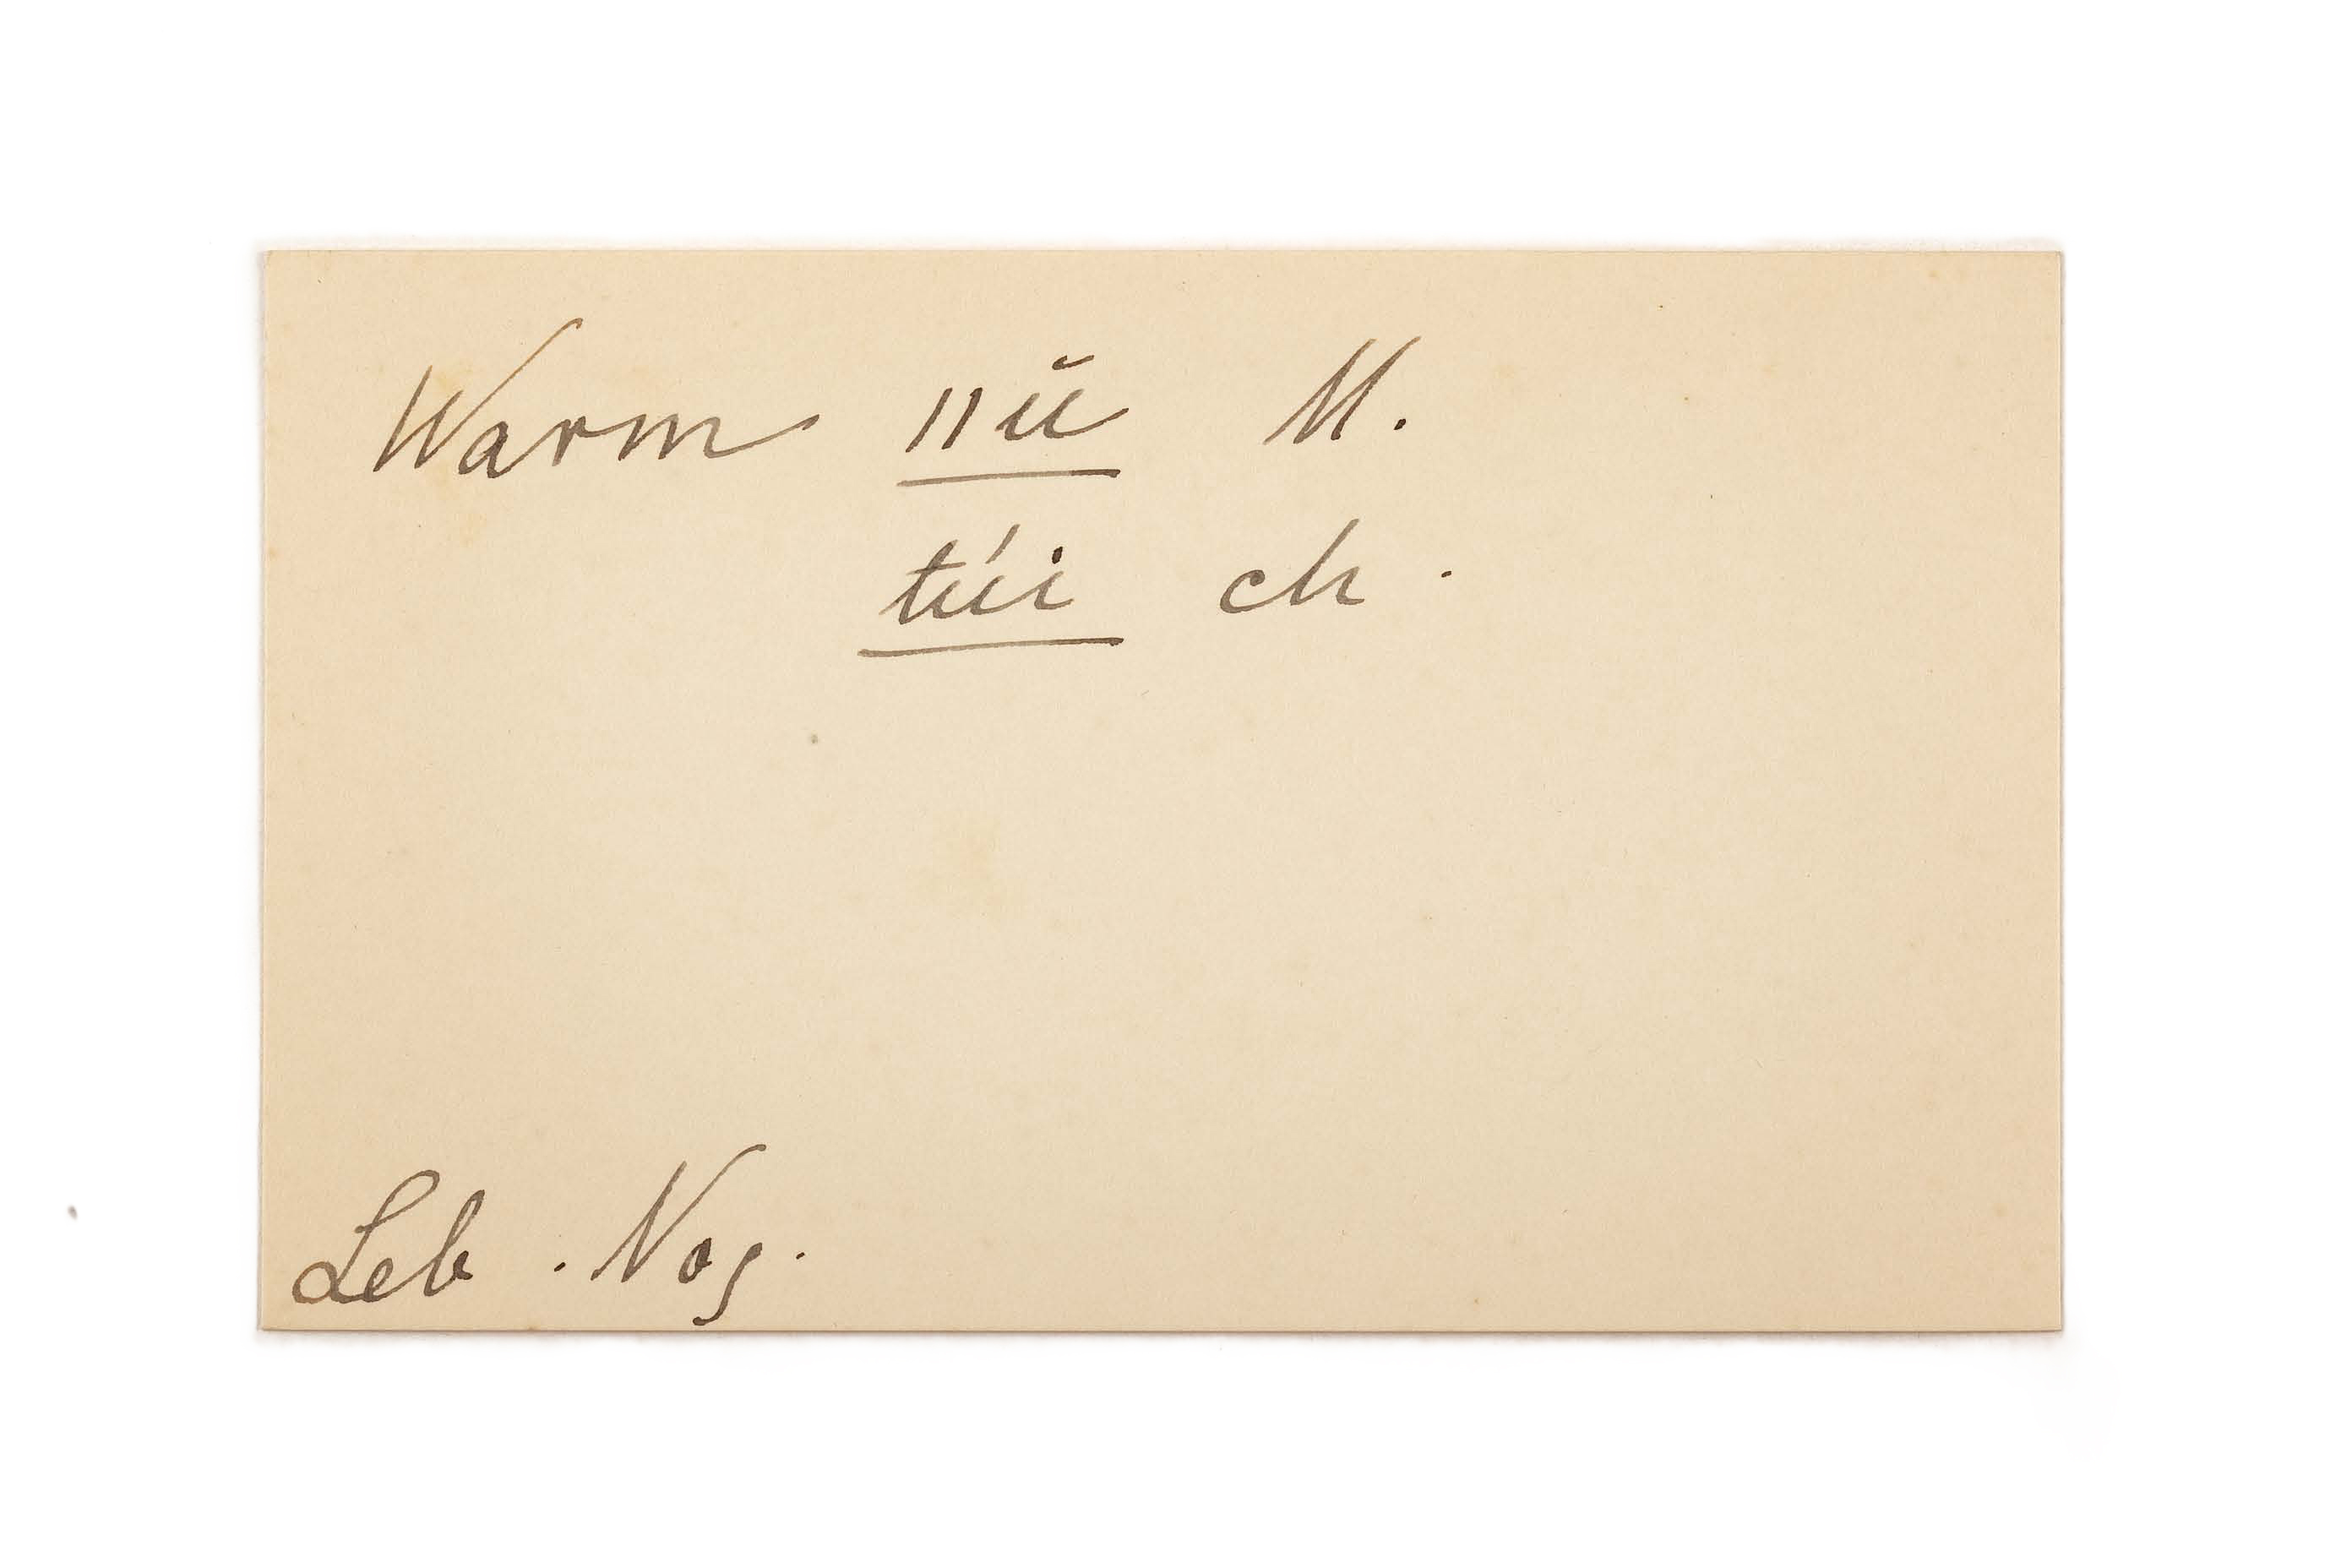 Warm nŭ M.
túi ch.
Leb. Nog.